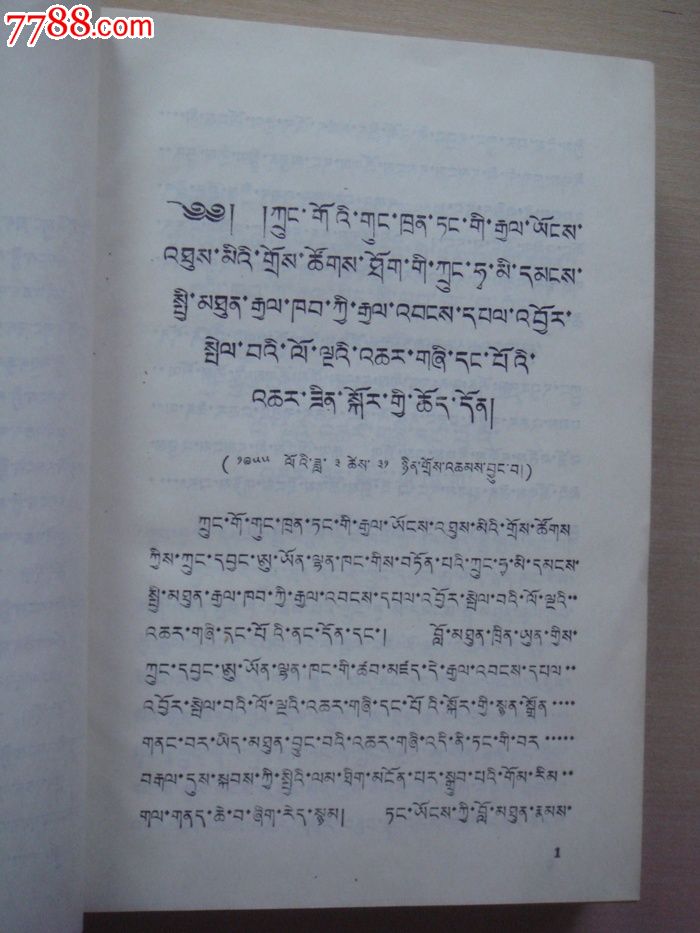 7788.com
༄༅། །ཀྲུང་གོའི་གུང་ཁྲན་ཏང་གི་རྒྱལ་ཡོངས་
འཐུས་མིའི་གྲོས་ཚོགས་ཐོག་གི་ཀྲུང་ཧྭ་མི་དམངས་
སྤྱི་མཐུན་རྒྱལ་ཁབ་ཀྱི་རྒྱལ་འབངས་དཔལ་འབྱོར་
སྤེལ་བའི་ལོ་ལྔའི་འཆར་གཞི་དང་པོའི་
འཆར་ཟིན་སྐོར་གྱི་ཆོད་དོན།
(༡༩༥༥ ལོའི་ཟླ་ ༣ ཚེས་ ༣༡ ཉིན་གྲོས་འཆམས་བྱུང་བ།)
ཀྲུང་གོ་གུང་ཁྲན་ཏང་གི་རྒྱལ་ཡོངས་འཐུས་མིའི་གྲོས་ཚོགས
ཀྱིས་ཀྲུང་དབྱང་ཨུ་ཡོན་ལྷན་ཁང་གིས་བཏོན་པའི་ཀྲུང་ཧྭ་མི་དམངས་
སྤྱི་མཐུན་རྒྱལ་ཁབ་ཀྱི་རྒྱལ་འབངས་དཔལ་འབྱོར་སྤེལ་བའི་ལོ་ལྔའི་
འཆར་གཞི་དང་པོའི་ནང་དོན་དང་། བློ་མཐུན་ཁྲིན་ཡུན་གྱིས་
ཀྲུང་དབྱང་ཨུ་ཡོན་ལྷན་ཁང་གི་ཚབ་མཛད་དེ་རྒྱལ་འབངས་དཔལ
འབྱོར་སྤེལ་བའི་ལོ་ལྔའི་འཆར་གཞི་དང་པོའི་སྐོར་གྱི་སྙན་སྒྲོན
གནང་བར་ཡིད་མཐུན་བྱུང་བའི་འཆར་གཞི་འདི་ནི་ཏང་གི་བར
བརྒལ་དུས་སྐབས་ཀྱི་སྤྱིའི་ལམ་ཐིག་མངོན་པར་སྒྲུབ་པའི་གོམ་རིམ
གལ་གནད་ཆེ་བ་ཞིག་རེད་སྙམ། ཏང་ཡོངས་ཀྱི་བློ་མཐུན་རྣམས་
1